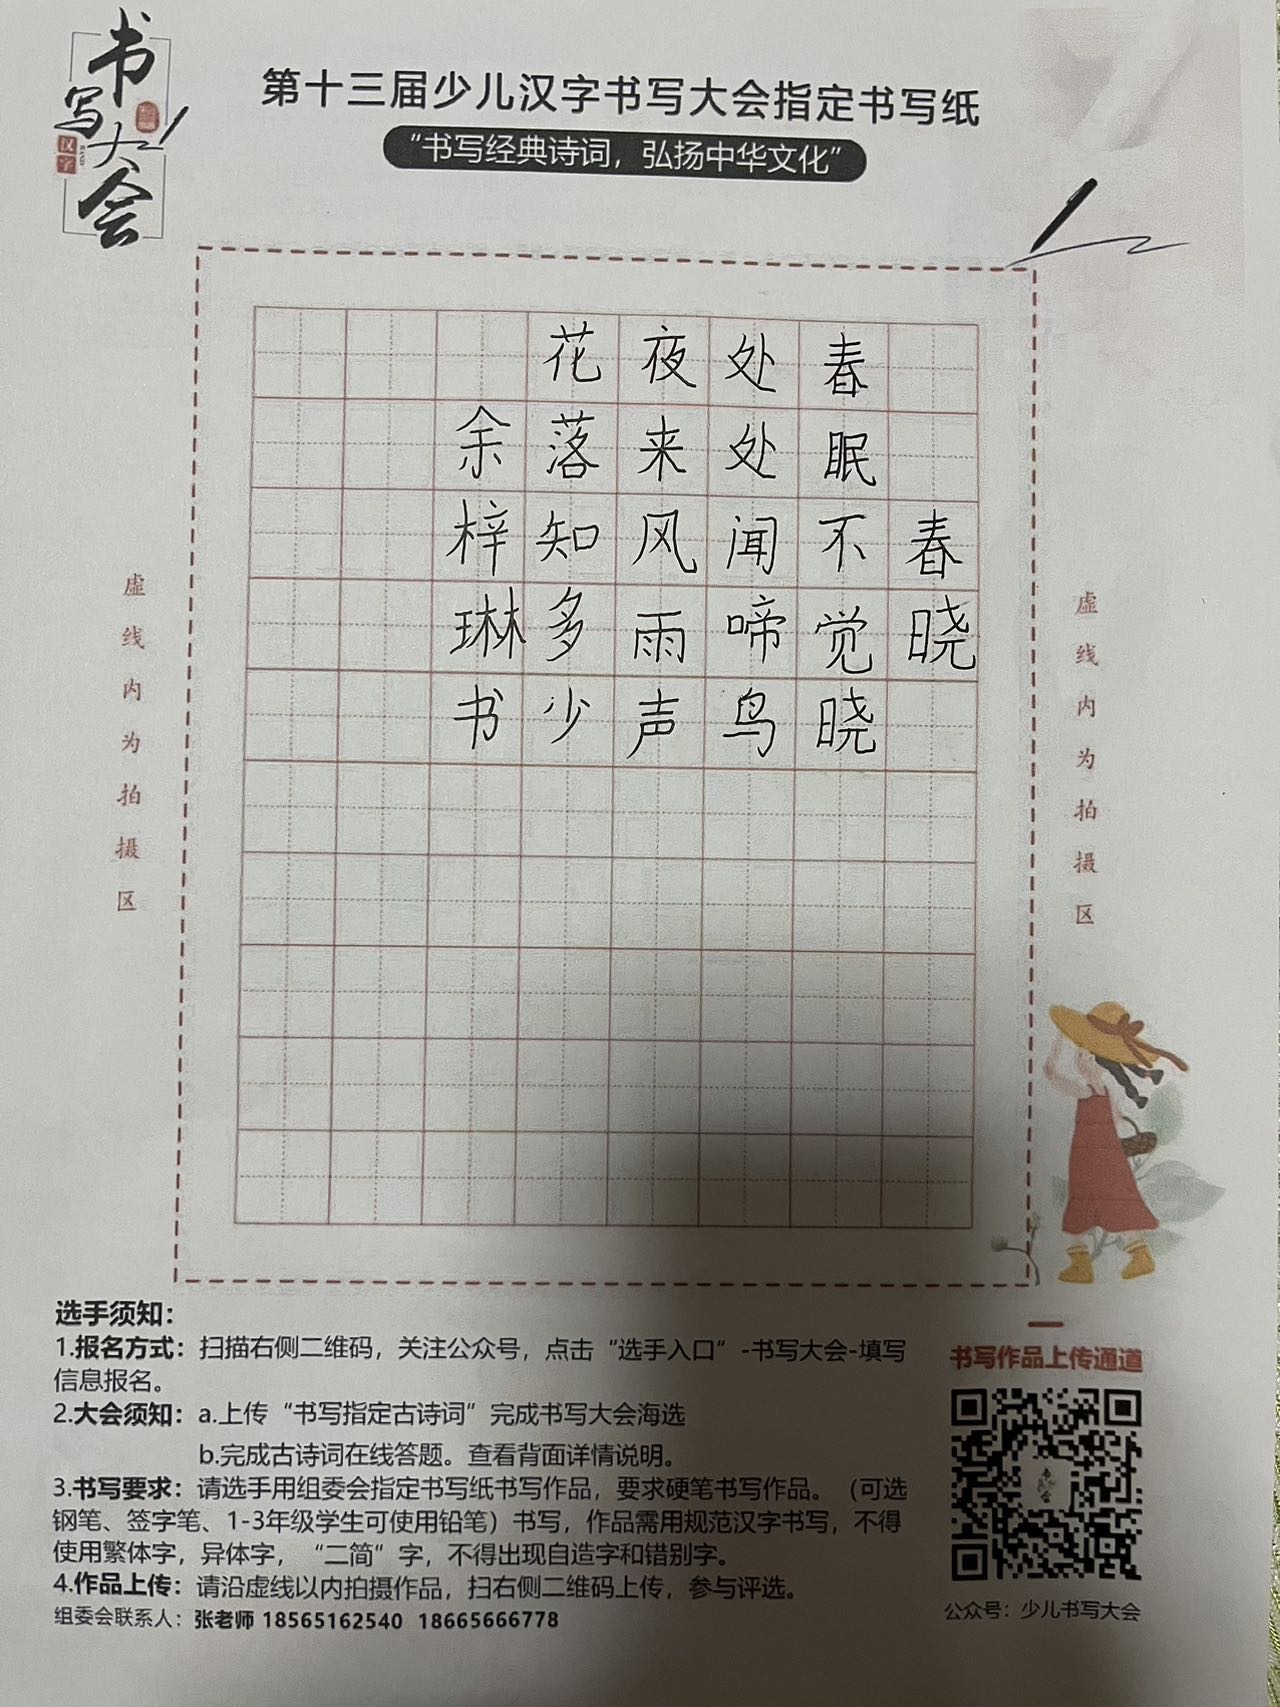 书写大会
汉字
第十三届少儿汉字书写大会指定书写纸
“书写经典诗词，弘扬中华文化”
春晓
春眠不觉晓
处处闻啼鸟
夜来风雨声
花落知多少
余梓琳书
虚线内为拍摄区
虚线内为拍摄区
选手须知：
1.报名方式：扫描右侧二维码，关注公众号，点击“选手入口”-书写大会-填写
信息报名。
2.大会须知：a.上传“书写指定古诗词”完成书写大会海选
b.完成古诗词在线答题。查看背面详情说明。
3.书写要求：请选手用组委会指定书写纸书写作品，要求硬笔书写作品。（可选
钢笔、签字笔、1-3年级学生可使用铅笔）书写，作品需用规范汉字书写，不得
使用繁体字，异体字，“二简”字，不得出现自造字和错别字。
4.作品上传：请沿虚线以内拍摄作品，扫右侧二维码上传，参与评选。
组委会联系人：张老师 18565162540 18665666778
书写作品上传通道
公众号：少儿书写大会